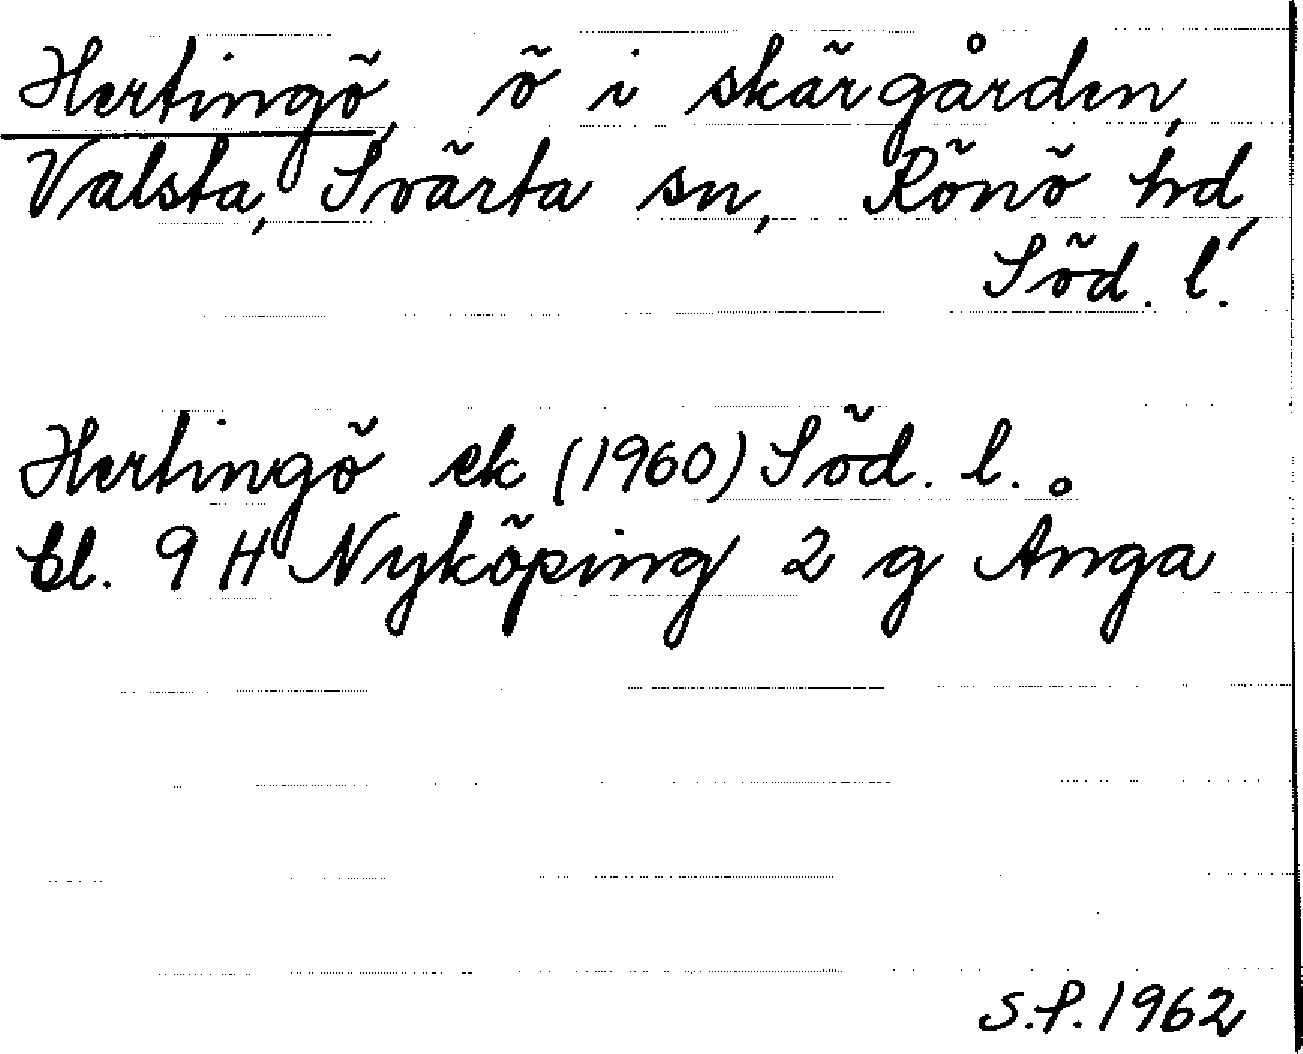 Hertingö, ö i skärgården,
Valsta, Svärta sn, Rönö hd,
Söd. l.
Hertingö ek (1960) Söd. l.
bl. 9 H Nyköping 2 g Ånga
S.P. 1962